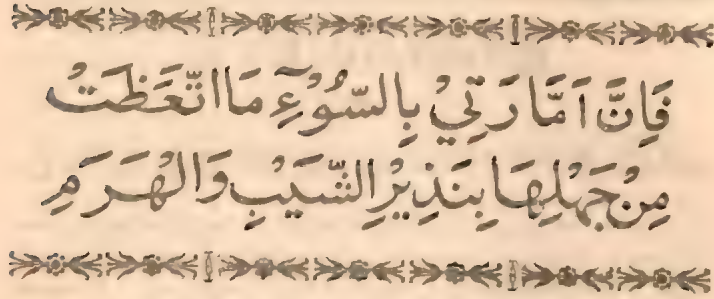 فَاِنَّ اَمَّارَتِيْ بِالسُّوْٓءِ مَا اتَّعَظَتْ
مِنْ جَهْلِهَا بِنَذِيْرِ الشَّيْبِ وَالْهَرَمِ